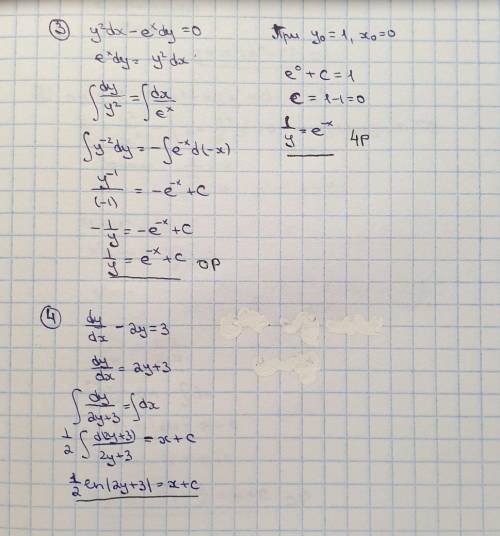 ③ y²dx - eˣdy = 0
eˣdy = y²dx
∫ dy/y² = ∫ dx/eˣ
∫ y⁻²dy = -∫ e⁻ˣ d(-x)
y⁻¹/(-1) = -e⁻ˣ + C
-1/y = -e⁻ˣ + C
1/y = e⁻ˣ + C ОР
При y₀ = 1, x₀ = 0
e⁰ + C = 1
C = 1 - 1 = 0
1/y = e⁻ˣ ЧР
④ dy/dx - 2y = 3
dy/dx = 2y + 3
∫ dy/2y+3 = ∫ dx
1/2 ∫ d(2y+3)/2y+3 = x + C
1/2 ln|2y+3| = x + C